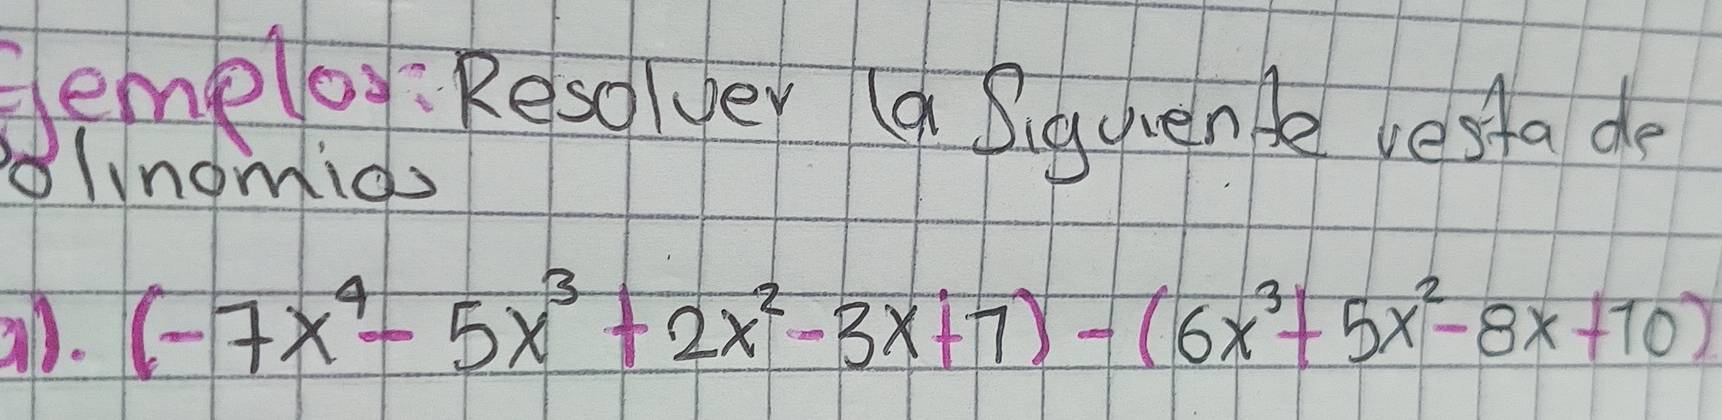 Ejemplos: Resolver la Siguiente resta de
Polinomios
a). (-7x⁴ - 5x³ + 2x² - 3x + 7) - (6x³ + 5x² - 8x + 10)